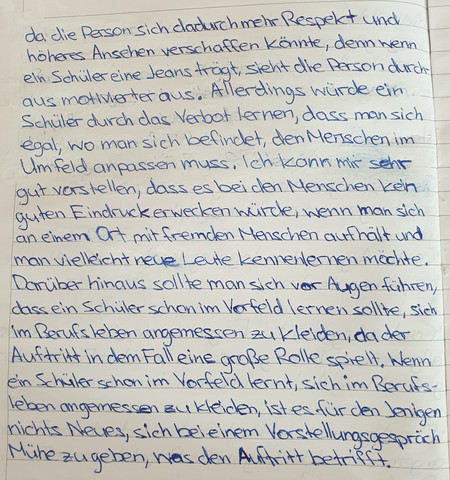 da die Person sich dadurch mehr Respekt und
höheres Ansehen verschaffen könnte, denn wenn
ein Schüler eine Jeans trägt, sieht die Person durch-
aus motivierter aus. Allerdings würde ein
Schüler durch das Verbot lernen, dass man sich
egal, wo man sich befindet, den Menschen im
Umfeld anpassen muss. Ich kann mir sehr
gut vorstellen, dass es bei den Menschen kein
guten Eindruck erwecken würde, wenn man sich
an einem Ort mit fremden Menschen aufhält und
man vielleicht neue Leute kennenlernen möchte.
Darüber hinaus sollte man sich vor Augen führen,
dass ein Schüler schon im Vorfeld lernen sollte, sich
im Berufsleben angemessen zu kleiden, da der
Auftritt in dem Fall eine große Rolle spielt. Wenn
ein Schüler schon im Vorfeld lernt, sich im Berufs-
leben angemessen zu kleiden, ist es für den Jenigen
nichts Neues, sich bei einem Vorstellungsgespräch
Mühe zu geben, was den Auftritt betrifft.